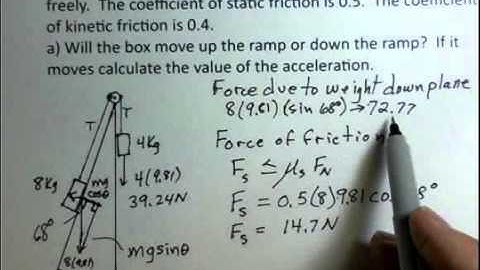 freely. The coefficient of static friction is 0.5. The coefficient
of kinetic friction is 0.4.
a) Will the box move up the ramp or down the ramp? If it
moves calculate the value of the acceleration.
Force due to weight down plane
8(9.81)(sin 68°) → 72.77
Force of friction
Fs ≤ μs FN
Fs = 0.5(8)9.81 co 8°
Fs = 14.7N
T T
4Kg
4(9.81)
39.24N
8Kg
mg
cosθ
68°
8(9.81)
mgsinθ